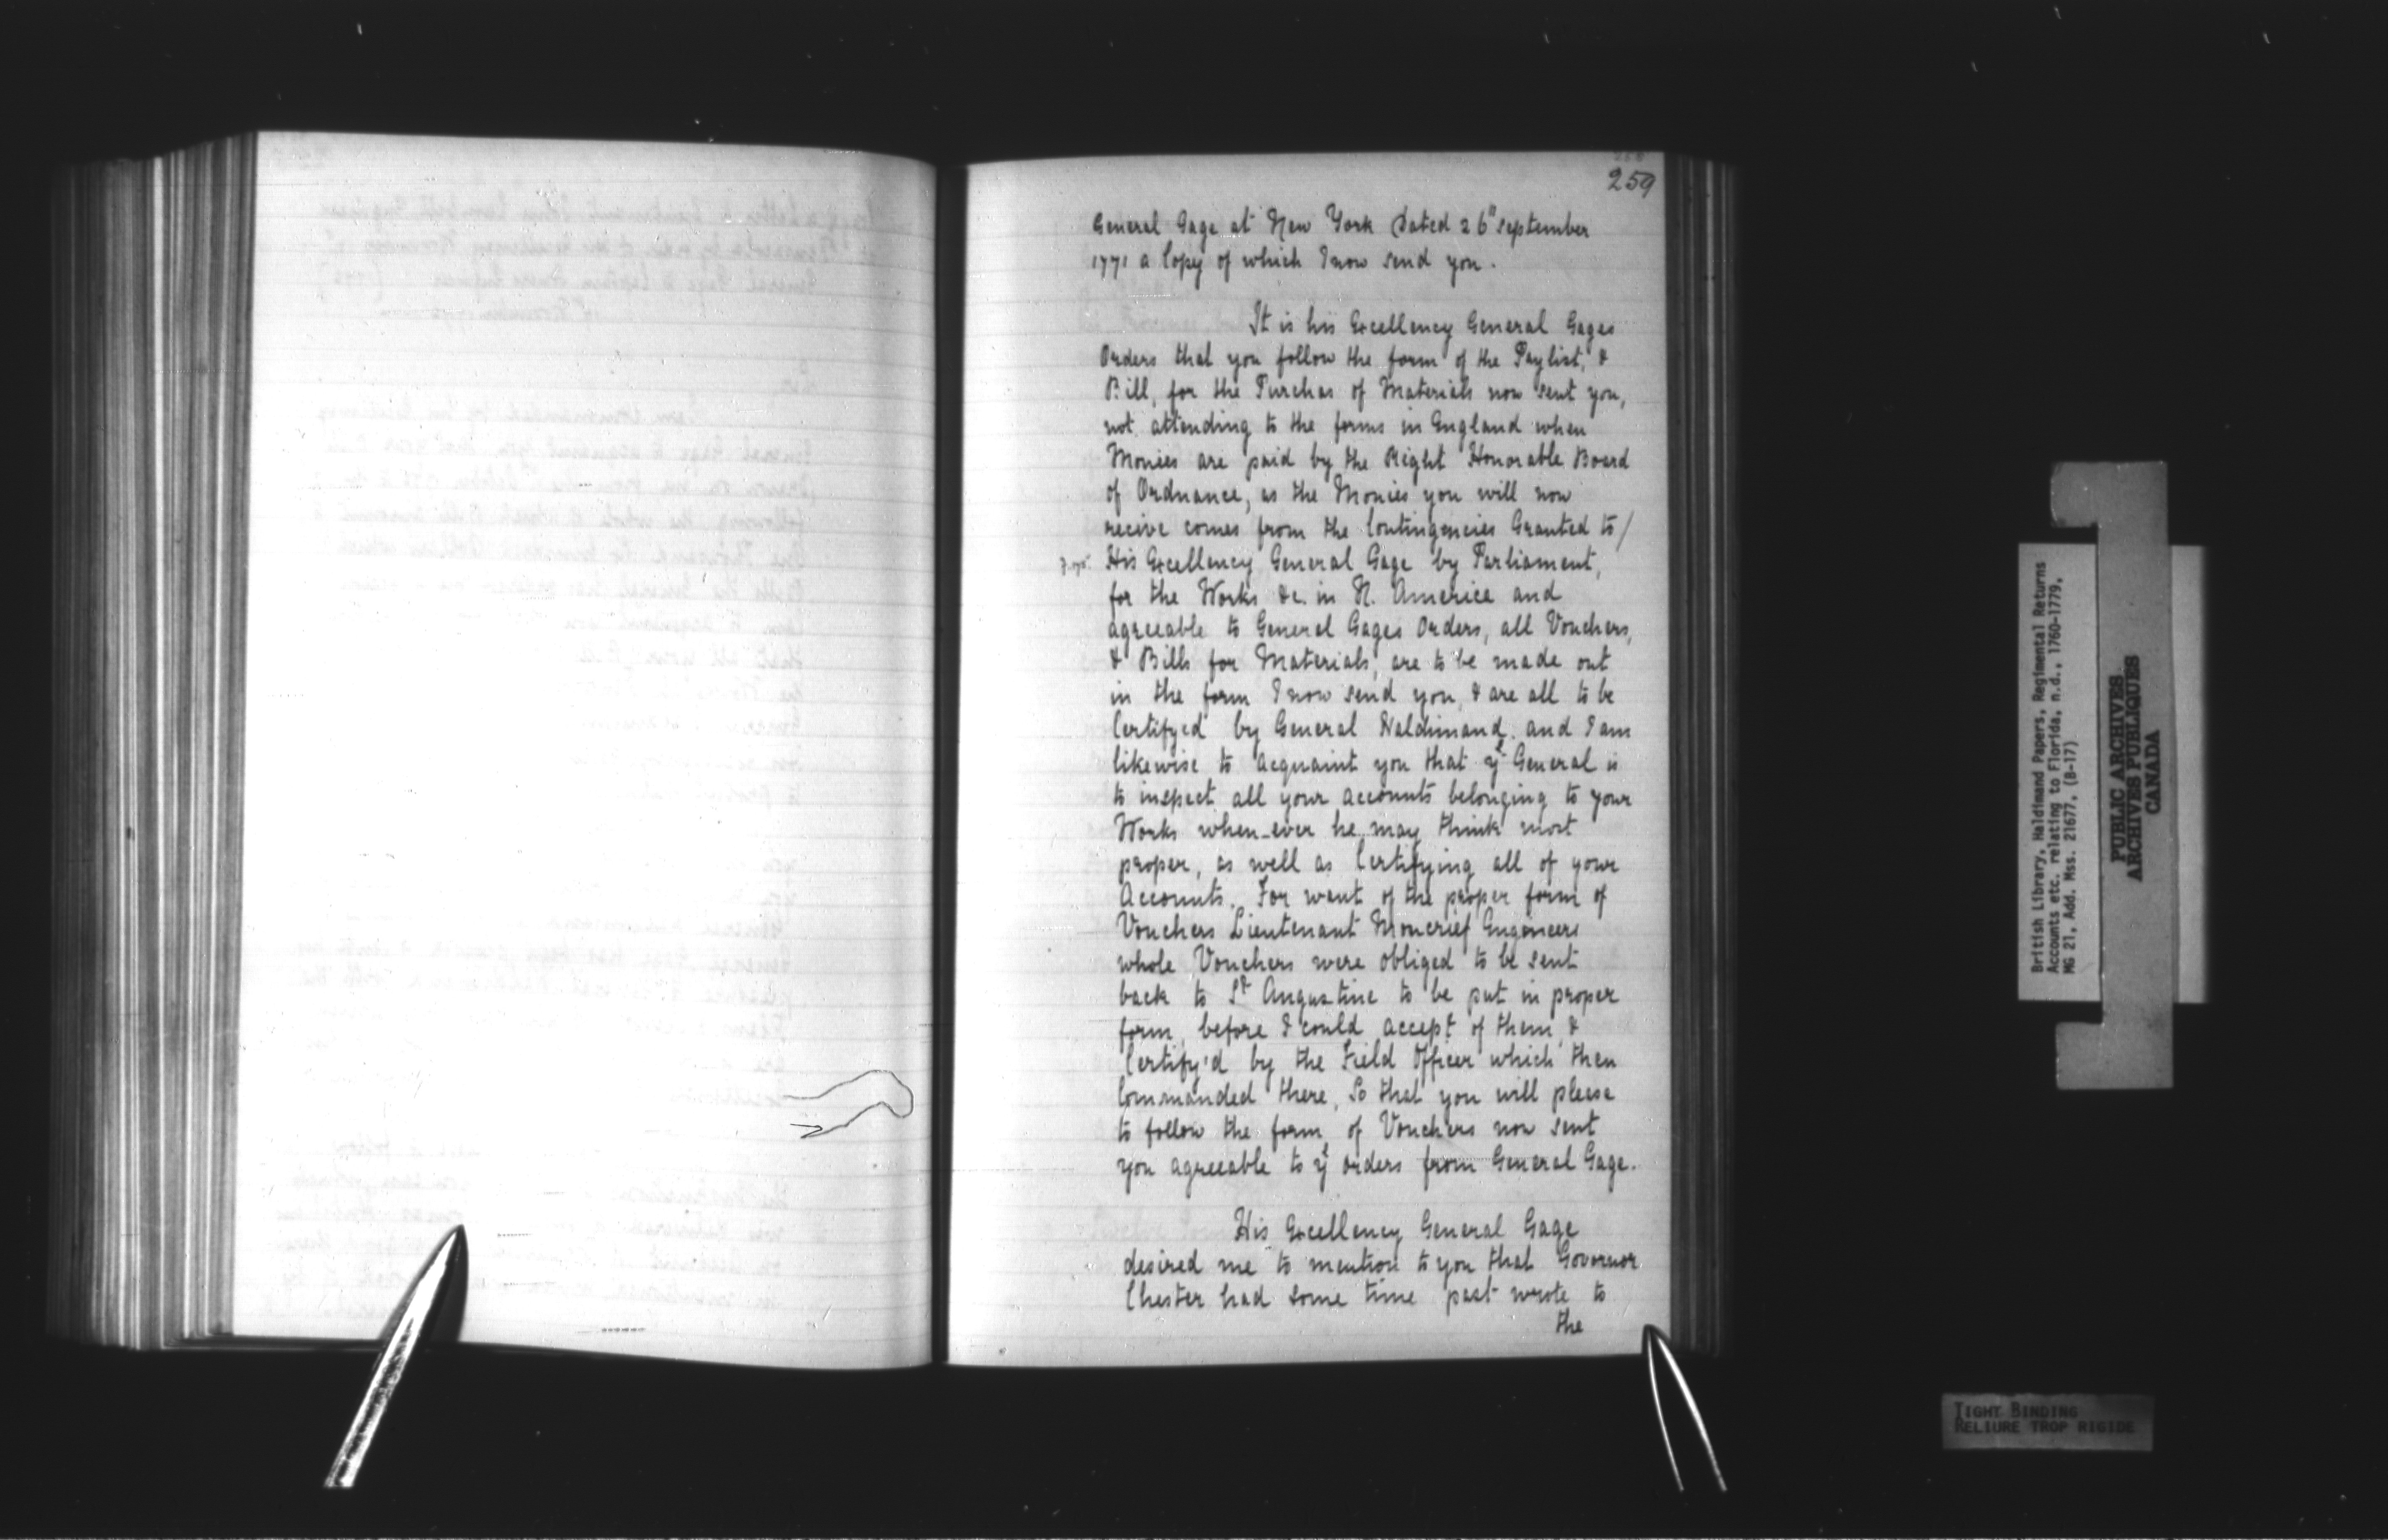 259
General Gage at New York Dated 26" September
1771 a Copy of which I now send you.
It is his Excellency General Gages
Orders that you follow the form of the Paylist, &
Bill, for the Purchas of Materials now sent you,
not attending to the forms in England when
Monies are paid by the Right Honorable Board
of Ordnance, as the Monies you will now
recive comes from the Contingencies Granted to /
His Excellency General Gage by Parliament,
for the Works &c. in N. America and
agreeable to General Gages Orders, all Vouchers,
& Bills for Materials, are to be made out
in the form I now send you, & are all to be
Certifyed by General Haldimand. and I am
likewise to acquaint you that ye General is
to inspect all your accounts belonging to your
Works when-ever he may think most
proper, as well as Certifying all of your
Accounts. For want of the proper form of
Vouchers Lieutenant Moncrief Engineers
whole Vouchers were obliged to be sent
back to St Augustine to be put in proper
form, before I could accept of them, &
Certify'd by the Field Officer which then
Commanded there, So that you will please
to follow the form, of Vouchers now sent
you agreeable to ye orders from General Gage.
His Excellency General Gage
desired me to mention to you that Governor
Chester had some time past wrote to
the
British Library, Haldimand Papers, Regimental Returns
Accounts etc. relating to Florida, n.d., 1760-1779,
MG 21, Add. Mss. 21677, (B-17)
PUBLIC ARCHIVES
ARCHIVES PUBLIQUES
CANADA
TIGHT BINDING
RELIURE TROP RIGIDE